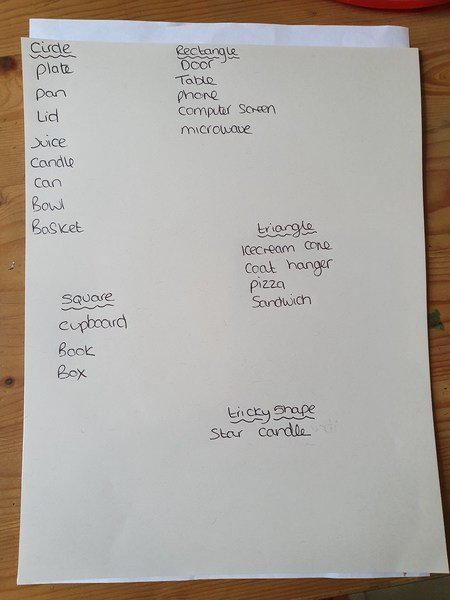 Circle
Plate
Pan
Lid
Juice
Candle
Can
Bowl
Basket
Rectangle
Door
Table
Phone
Computer Screen
microwave
triangle
Icecream cone
Coat hanger
Pizza
Sandwich
Square
cupboard
Book
Box
tricky shape
Star candle